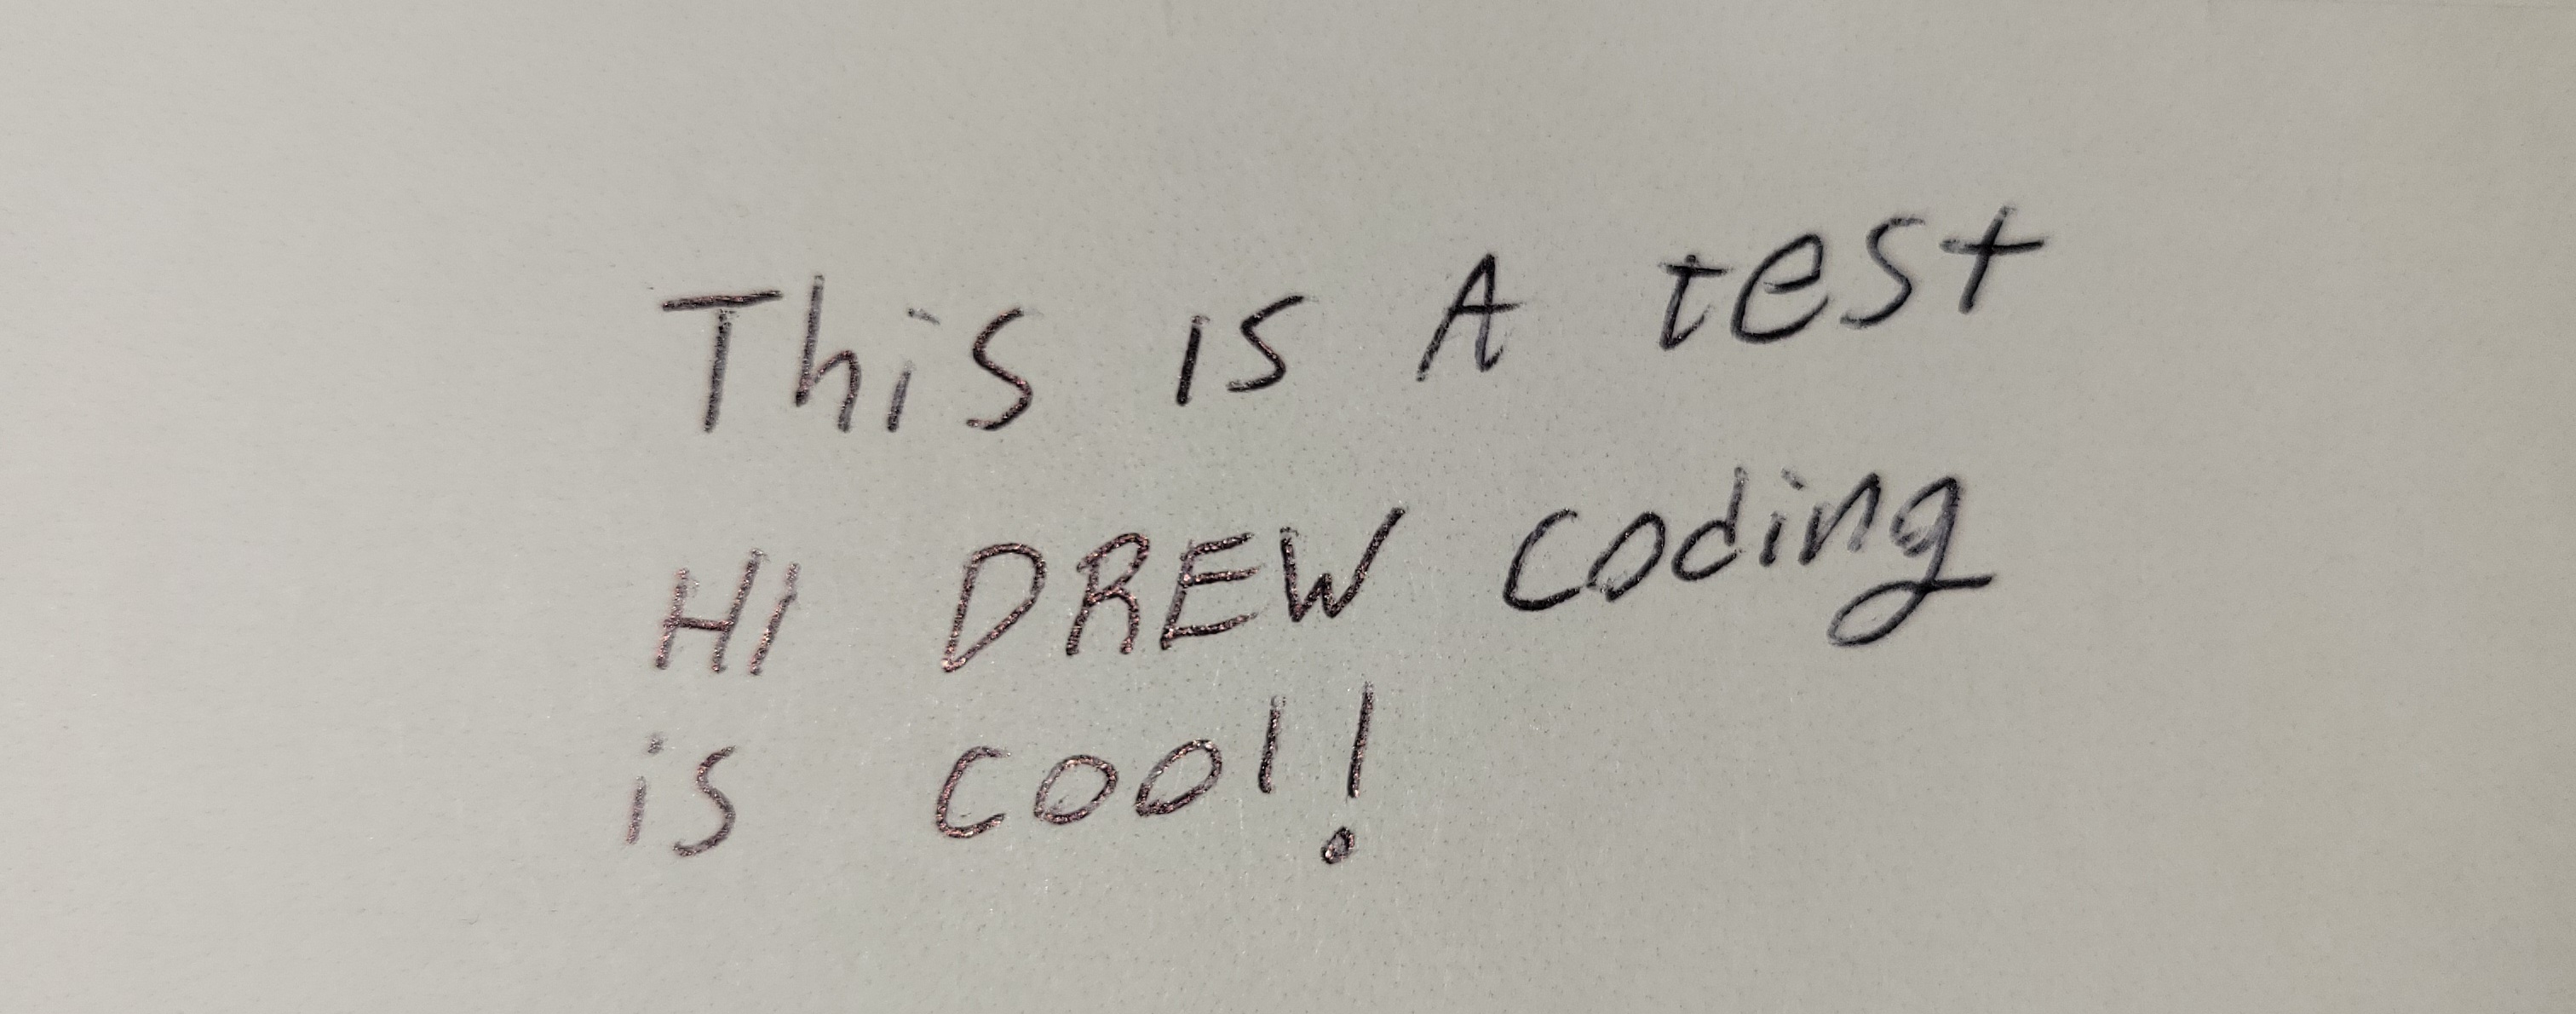 This is A test
HI DREW coding
is cool!